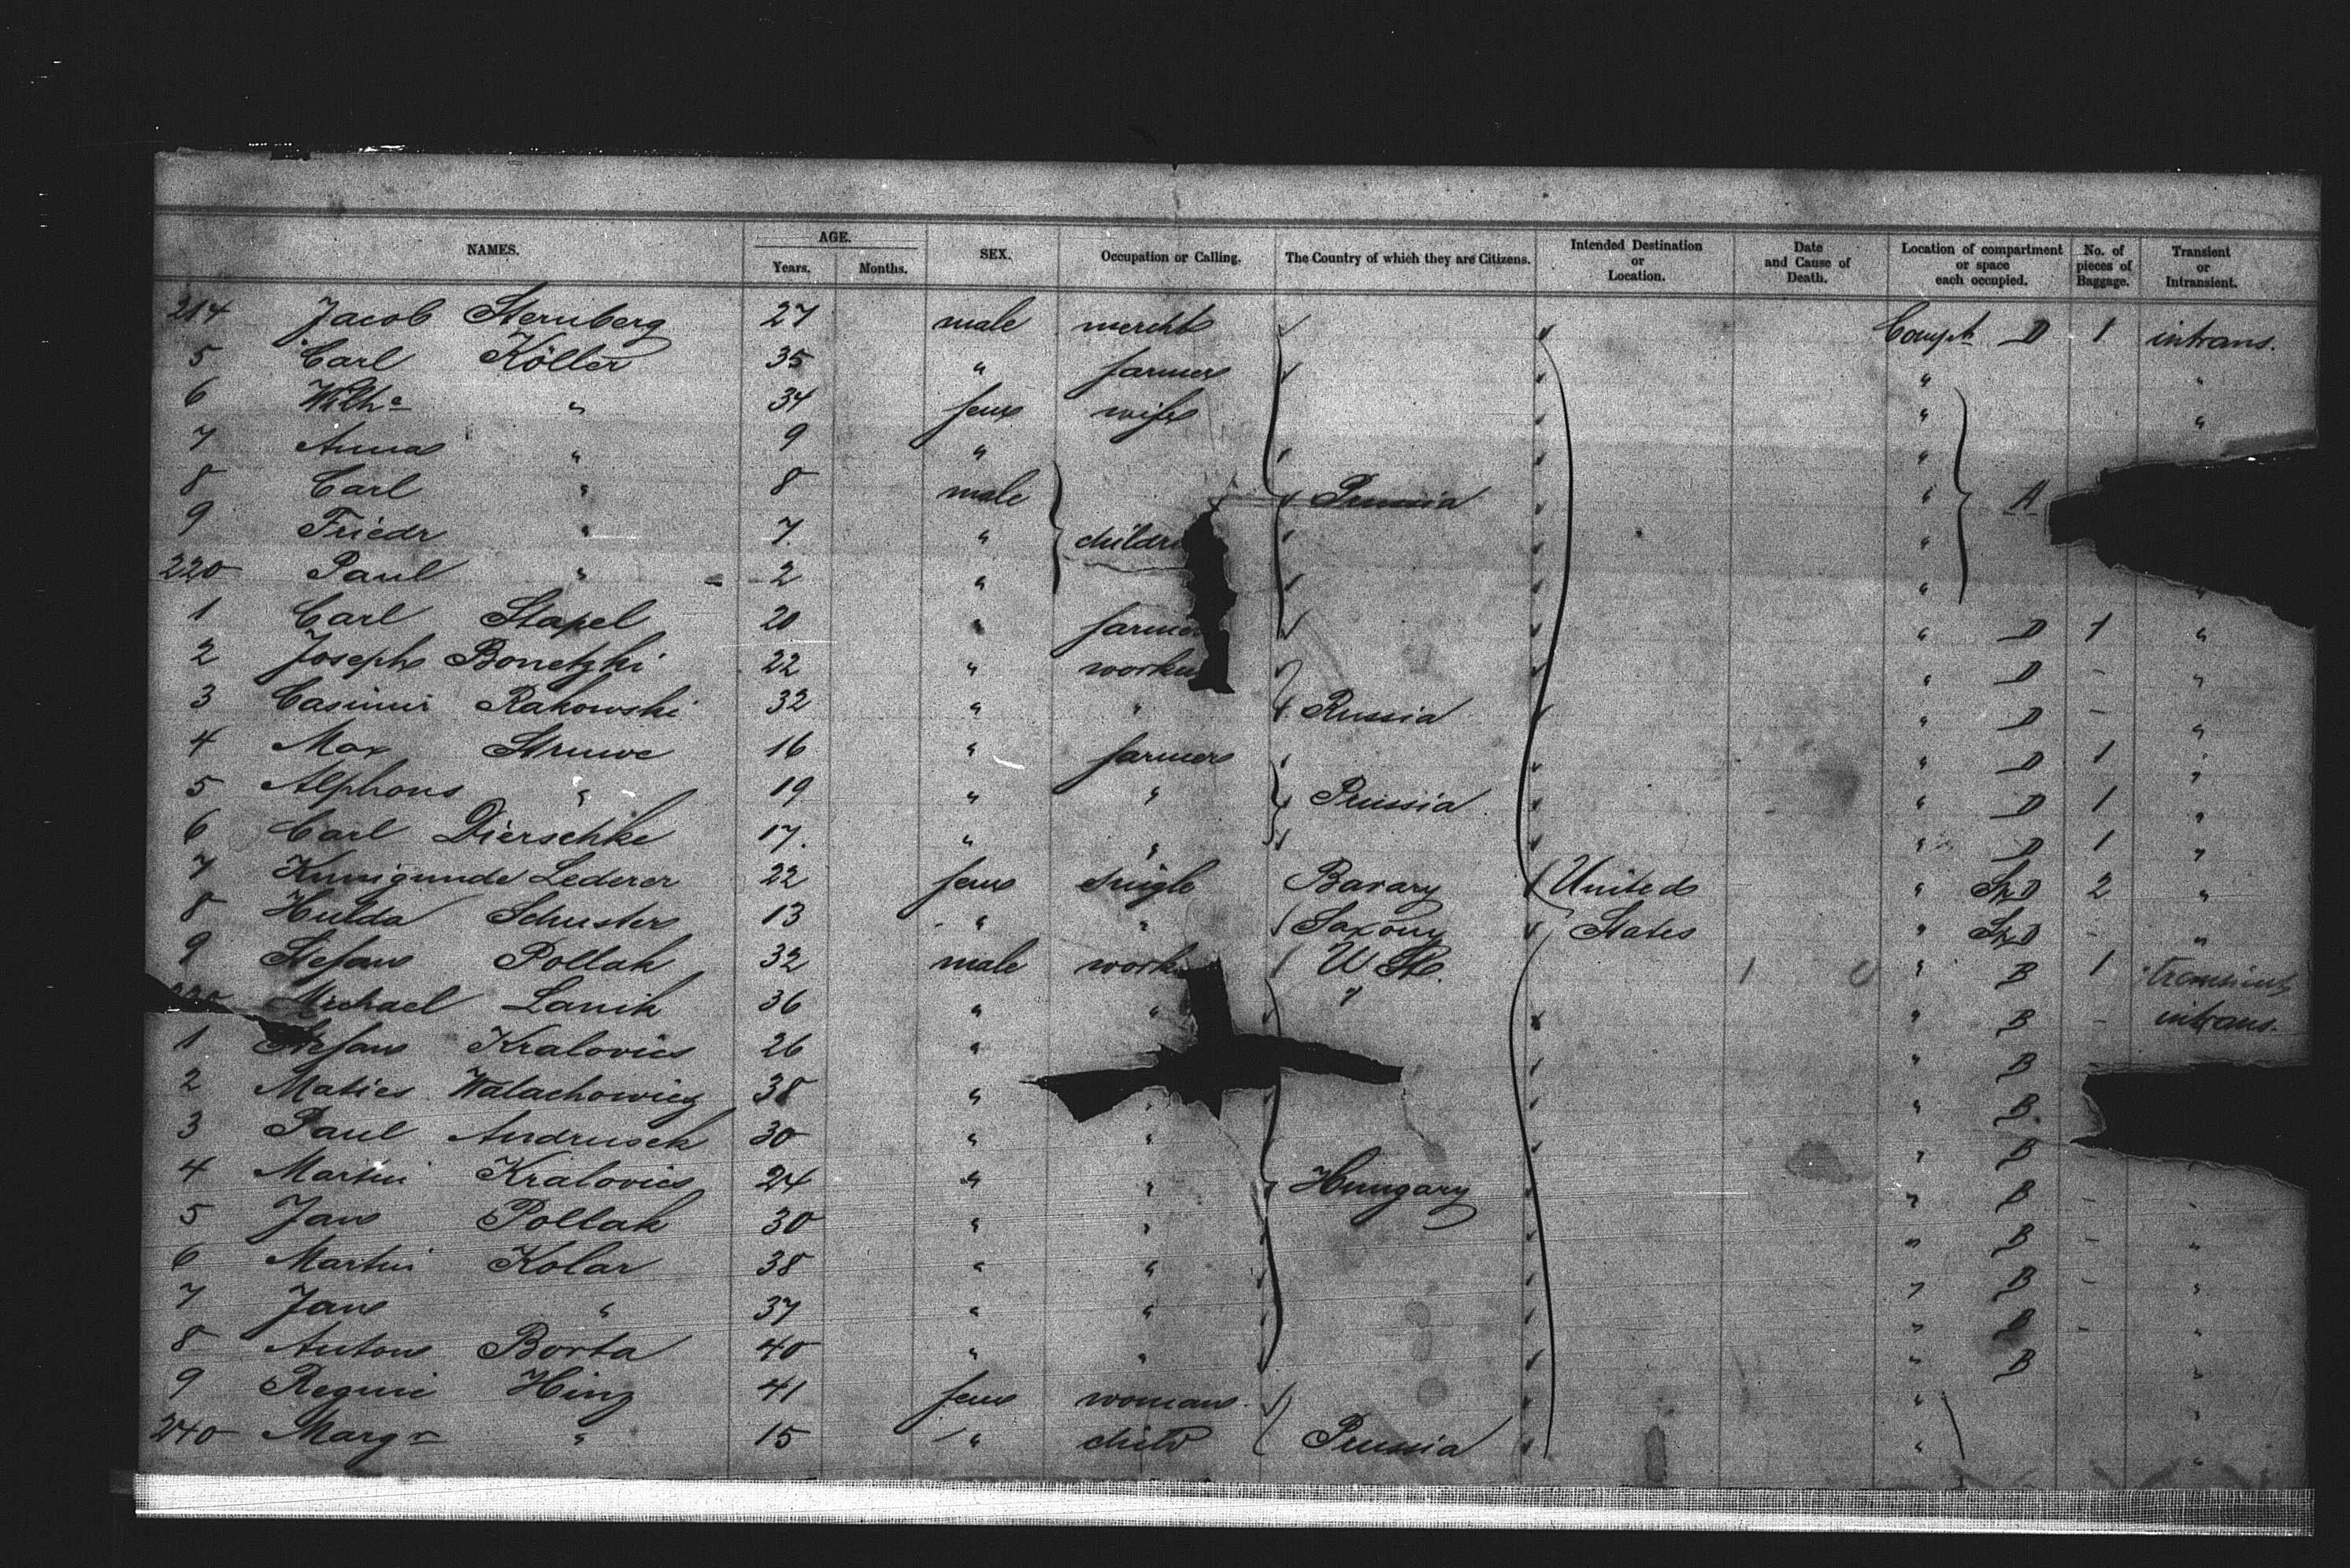 NAMES. AGE. Years. Months. SEX. Occupation or Calling. The Country of which they are Citizens. Intended Destination or Location. Date and Cause of Death. Location of compartment or space each occupied. No. of pieces of Baggage. Transient or Intransient.
214 Jacob Sternberg 27 male mercht Compt D 1 intrans.
5 Carl Köller 35 " farmer " "
6 Wilhe " 34 fem wife " "
7 Anna " 9 " "
8 Carl " 8 male Prussia " A
9 Friedr " 7. " childre "
220 Paul " 2 " " "
1 Carl Stapel 20 " farmer " D 1 "
2 Joseph Bonetzki 22 " worker " D - "
3 Casimir Rakowski 32 " " Russia " D - "
4 Max Struwe 16 " farmer " D 1 "
5 Alphons " 19 " " Prussia " D 1 "
6 Carl Dierschke 17. " " " D 1 "
7 Kunigunde Lederer 22 fem single Bavary United " StD 2 "
8 Hulda Schuster 13 " " Saxony States " StD - "
9 Stefan Pollak 32 male work U St. " B 1 transient
Michael Lanik 36 " " " " B - intrans.
1 Stefan Kralovics 26 " " B
2 Maties Walachowicz 38 " " " B.
3 Paul Andrusek 30 " " " B -
4 Martin Kralovics 24 " " Hungary " B - "
5 Jan Pollak 30 " " " B - "
6 Martin Kolar 38 " " " B - "
7 Jan " 37 " " " B - "
8 Anton Borta 40 " " " B "
9 Regine Hinz 41 fem woman " "
240 Margr " 15 " child Prussia " "